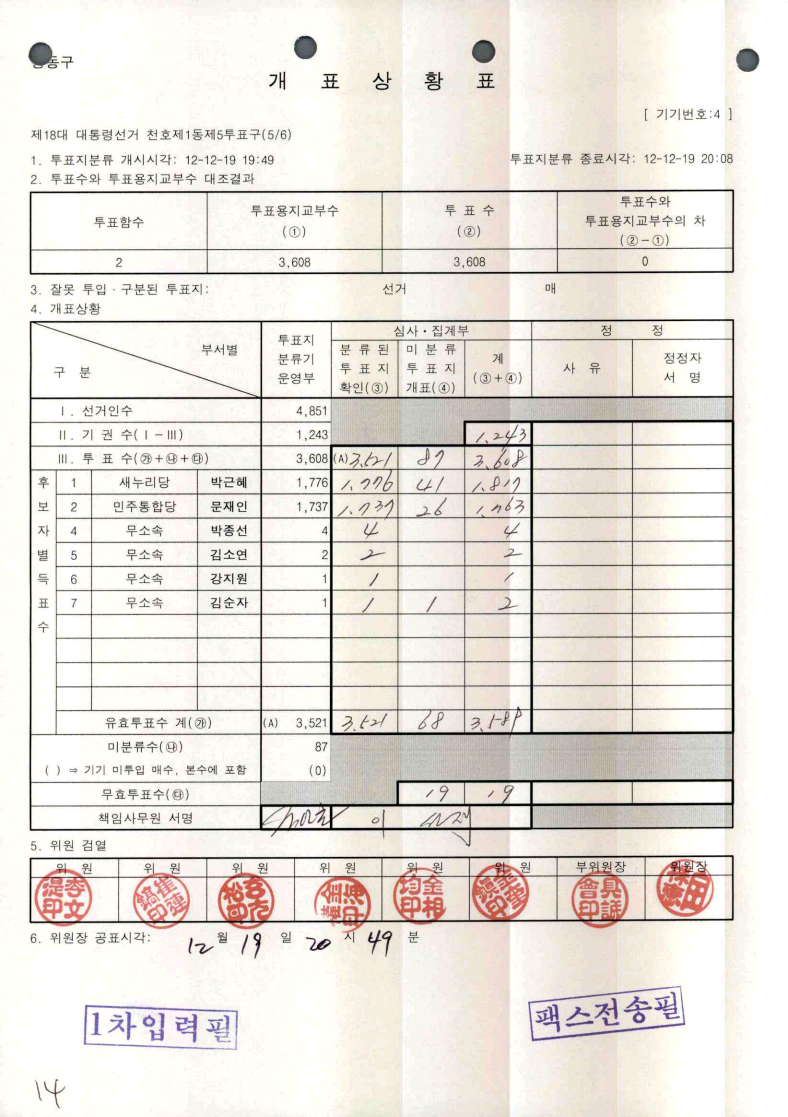 동구
개 표 상 황 표
[ 기기번호:4 ]
제18대 대통령선거 천호제1동제5투표구(5/6)
1. 투표지분류 개시시각: 12-12-19 19:49 투표지분류 종료시각: 12-12-19 20:08
2. 투표수와 투표용지교부수 대조결과
투표함수 투표용지교부수 (①) 투 표 수 (②) 투표수와 투표용지교부수의 차 (②-①)
2 3,608 3,608 0
3. 잘못 투입·구분된 투표지: 선거 매
4. 개표상황
구 분 부서별 투표지 분류기 운영부 심사·집계부 정 정
분류된 투표지 확인(③) 미분류 투표지 개표(④) 계 (③+④) 사 유 정정자 서 명
Ⅰ. 선거인수 4,851
Ⅱ. 기 권 수(Ⅰ-Ⅲ) 1,243 1,243
Ⅲ. 투 표 수(㉮+㉯+㉰) 3,608 (A)3,521 87 3,608
후보자별득표수
1 새누리당 박근혜 1,776 1,776 41 1,817
2 민주통합당 문재인 1,737 1,737 26 1,763
4 무소속 박종선 4 4 4
5 무소속 김소연 2 2 2
6 무소속 강지원 1 1 1
7 무소속 김순자 1 1 1 2
유효투표수 계(㉮) (A) 3,521 3,521 68 3,589
미분류수(㉯) 87
( ) ⇒ 기기 미투입 매수, 본수에 포함 (0)
무효투표수(㉰) 19 19
책임사무원 서명
5. 위원 검열
위 원 위 원 위 원 위 원 위 원 위 원 부위원장 위원장
6. 위원장 공표시각: 12 월 19 일 20 시 49 분
1차입력필
팩스전송필
14